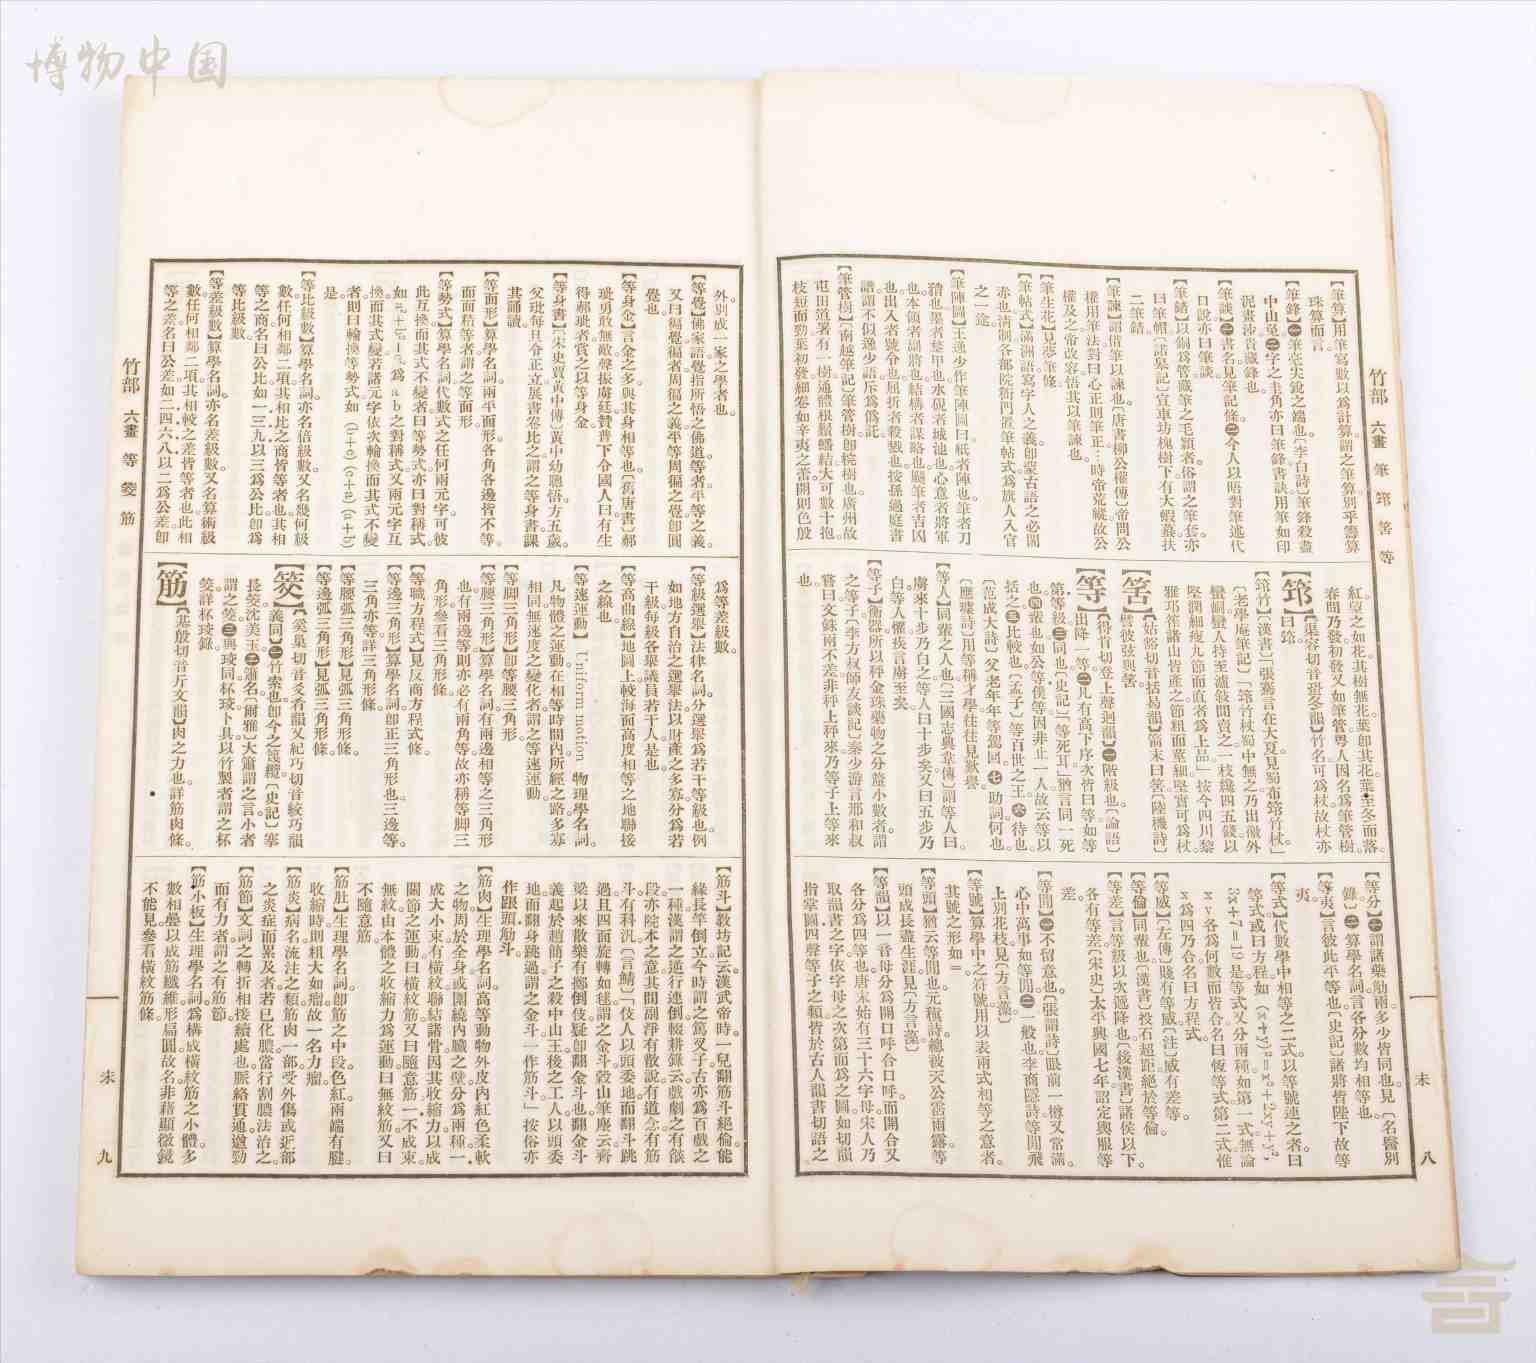 博物中国
竹部 六畫 筆 筇 筈 等
未 八
【筆算】用筆寫數以爲計算。謂之筆算。別乎籌算
珠算而言。
【筆鋒】㊀筆毫尖銳之端也。〔李白詩〕筆鋒殺盡
中山兔。㊁字之圭角亦曰筆鋒。書訣。用筆如印
泥畫沙。貴藏鋒也。
【筆談】㊀書名。見筆記條。㊁今人以晤對筆述代
口說。亦曰筆談。
【筆錔】以銅爲管。韜筆之毛穎者。俗謂之筆套。亦
曰筆帽。
二筆錔。
【筆諫】謂借筆以諫也。〔唐書柳公權傳〕帝問公
權用筆法。對曰。心正則筆正。時帝荒縱。故公
權及之。帝改容。悟其以筆諫也。
【筆生花】見夢筆條。
【筆帖式】滿洲語寫字人之義。卽蒙古語之必闍
赤也。清制各部院衙門置筆帖式。爲旗人入官
之一途。
【筆陣圖】王逸少作筆陣圖曰。紙者陣也。筆者刀
矟也。墨者鍪甲也。水硯者城池也。心意者將軍
也。本領者副將也。結構者謀略也。颺筆者吉凶
也。出入者號令也。屈折者殺戮也。按孫過庭書
譜謂不似逸少語。斥爲僞託。
【筆管樹】〔南越筆記〕筆管樹。卽梡樹也。廣州故
屯田道署有一樹。通體根鬚蟠結。大可數十抱。
枝短而勁。葉初發細卷如辛夷之蕾。開則色殷
紅。望之如花。其樹無花。葉卽其花。葉至冬而落。
春間乃發。初發又如筆管。粵人因名爲筆管樹。
【筇】〔渠容切音蛩冬韻〕竹名。可爲杖。故杖亦
曰筇。
【筇竹】〔漢書〕「張騫言在大夏見蜀布筇竹杖」
〔老學庵筆記〕「筇竹杖蜀中無之。乃出徼外
蠻峒。蠻人持至瀘敍間賣之。一枝纔四五錢。以
堅潤細瘦九節而直者爲上品」按今四川黎
雅邛筰諸山皆產之。節粗而莖細。堅實可爲杖。
【筈】〔姑豁切音括曷韻〕箭末曰筈。〔陸機詩〕
臂彼弦與筈
【等】〔得肯切登上聲迥韻〕㊀階級也。〔論語〕
出降一等。㊁凡有高下序次皆曰等。如等
第等級。㊂同也。〔史記〕「等死耳」猶言同一死
也。㊃輩也。如公等僕等。因非止一人。故云等以
括之。㊄比較也。〔孟子〕等百世之王。㊅待也。
〔范成大詩〕父老年年等駕回。㊆助詞。何也。
〔應璩詩〕用等稱才學。往往見歎譽。
【等人】同輩之人也。〔三國志典韋傳〕謂等人曰。
虜來十步。乃白之。等人曰。十步矣。又曰。五步乃
白。等人懼。疾言虜至矣。
【等子】衡器。所以秤金珠藥物之分釐小數者。謂
之等子。〔李方叔師友談記〕秦少游言邢和叔
嘗曰。文銖兩不差。非秤上秤來。乃等子上等來
也。
【等分】㊀謂諸藥觔兩多少皆同也。見〔名醫別
錄〕㊁算學名詞。言各分數均相等也。
【等夷】言彼此平等也。〔史記〕諸將皆陛下故等
夷。
【等式】代數學中相等之二式。以等號連之者曰
等式。或曰方程。如 (x+y)²=x²+2xy+y²,
3x+7=19 是。等式又分兩種。如第一式無論
x y 各爲何數而皆合。名曰恆等式。第二式惟
x 爲四乃合。名曰方程式。
【等威】〔左傳〕賤有等威。〔注〕威有等差。
【等倫】同輩也。〔漢書〕投石超距絕於等倫。
【等差】言等級以次遞降也。〔後漢書〕諸侯以下。
各有等差。〔宋史〕太平興國七年。詔定輿服等
差。
【等閒】㊀不留意也。〔張謂詩〕眼前一樽又常滿。
心中萬事如等閒。㊁一般也。李商隱詩。等閒飛
上別花枝。見〔方言藻〕
【等號】算學中之符號。用以表兩式相等之意者。
其號之形如=
【等頭】猶云等閒也。元稹詩。總被天公霑雨露。等
頭成長盡生涯。見〔方言藻〕
【等韻】以一音母分爲開口呼合口呼。而開合又
各分爲四等也。唐末始有三十六字母。宋人乃
取韻書之字。依字母之次第而爲之圖。如切韻
指掌圖四聲等子之類。皆於古人韻書切語之
外。別成一家之學者也。
【等覺】佛家語。覺指所悟之佛道。等者平等之義。
又曰徧覺。徧者周徧之義。平等周徧之覺。卽圓
覺也。
【等身金】言金之多。與其身相等也。〔舊唐書〕郝
玼勇敢無敵。聲振虜廷。贊普下令國人曰。有生
得郝玼者。賞之以等身金。
【等身書】〔宋史賈黃中傳〕黃中幼聰悟。方五歲。
父玭每旦令正立。展書卷比之。謂之等身書。課
其誦讀。
【等面形】算學名詞。兩平面形。各角各邊皆不等。
而面積等者。謂之等面形
【等勢式】算學名詞。代數式之任何兩元字可彼
此互換。而其式不變者。曰等勢式。亦曰對稱式。
爲 a b 之對稱式。又兩元字互
換。而其式變。若諸元字依次輪換。而其式不變
者。則曰輪換等勢式。如 (a+b) (b+c) (c+a)
是。
【等比級數】算學名詞。亦名倍級數。又名幾何級
數。任何相鄰二項其相比之商皆等者也。其相
等之商名曰公比。如一三九以三爲公比。卽爲
等比級數。
【等差級數】算學名詞。亦名差級數。又名算術級
數。任何相鄰二項其相較之差皆等者也。此相
等之差名曰公差。如二四六八。以二爲公差。卽
爲等差級數。
【等級選舉】法律名詞。分選舉爲若干等級也。例
如地方自治之選舉法。以財產之多寡。分爲若
干級。每級各舉議員若干人是也。
【等高曲線】地圖上較海面高度相等之地聯接
之線也
【等速運動】 Uniform motion 物理學名詞。
凡物體之運動。在相等時間內所經之路多寡
相同。無速度之變化者。謂之等速運動
【等脚三角形】卽等腰三角形。
【等腰三角形】算學名詞。有兩邊相等之三角形
也。有兩邊等則亦必有兩角等。故亦稱等脚三
角形。參看三角形條。
【等職方程式】見反商方程式條。
【等邊三角形】算學名詞。卽正三角形也。三邊等。
三角亦等。詳三角形條。
【等腰弧三角形】見弧三角形條。
【等邊弧三角形】見弧三角形條。
【筊】〔奚巢切音爻肴韻又紀巧切音絞巧韻
義同〕㊀竹索也。卽今之篾纜。〔史記〕搴
長筊沈美玉。㊁簫名。〔爾雅〕大簫謂之言。小者
謂之筊。㊂與珓同。杯珓。卜具。以竹製者謂之杯
筊。詳杯珓條。
【筋】〔基殷切音斤文韻〕肉之力也。詳筋肉條。
【筋斗】教坊記云。漢武帝時。一兒翻筋斗絕倫。能
緣長竿倒立。今時謂之筤叉子。古亦爲百戲之
一種。漢謂之逆行連倒。輟耕錄云。戲劇之有燄
段。亦院本之意。其間副淨有散說。有道念。有筋
斗。有科汎。〔言鯖〕「伎人以頭委地而翻斗跳
過。且四面旋轉如毬。謂之金斗。穀山筆麈云。齊
梁以來散樂有擲倒伎。疑卽翻金斗也。翻金斗
義起於趙簡子之殺中山王。後之工人以頭委
地而翻身跳過。謂之金斗。一作筋斗」按俗亦
作跟頭。觔斗。
【筋肉】生理學名詞。高等動物外皮內紅色柔軟
之物。周於全身。或圍繞內臟之壁。分爲兩種。一
成大小束。有橫紋。聯結諸骨。因其收縮力以成
關節之運動。曰橫紋筋。又曰隨意筋。一不成束。
無紋。由本體之收縮力爲運動。曰無紋筋。又曰
不隨意筋。
【筋肚】生理學名詞。卽筋之中段。色紅。兩端有腱。
收縮時則粗大如瘤。故一名力瘤。
【筋炎】病名。流注之類。筋肉一部受外傷或近部
之炎症而累及者。若已化膿。當行割膿法治之。
【筋節】文詞之轉折相接續處也。脈絡貫通遒勁
而有力者。謂之有筋節
【筋小板】生理學名詞。爲構成橫紋筋之小體。多
數相疊以成筋纖維。形扁圓。故名。非藉顯微鏡
不能見。參看橫紋筋條。
竹部 六畫 等 筊 筋
未 九